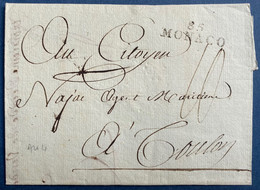 85
MONACO
Au Citoyen
Najac Agent Maritime
à Toulon